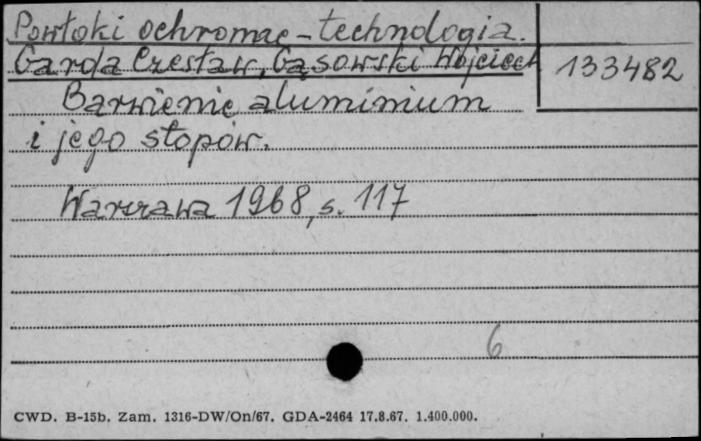 Powłoki ochronne - technologia.
Garda Czesław, Gąsowski Wojciech
133482
Barwienie aluminium
i jego stopów.
Warszawa 1968, s. 117
6
CWD. B-15b. Zam. 1316-DW/On/67. GDA-2464 17.8.67. 1.400.000.